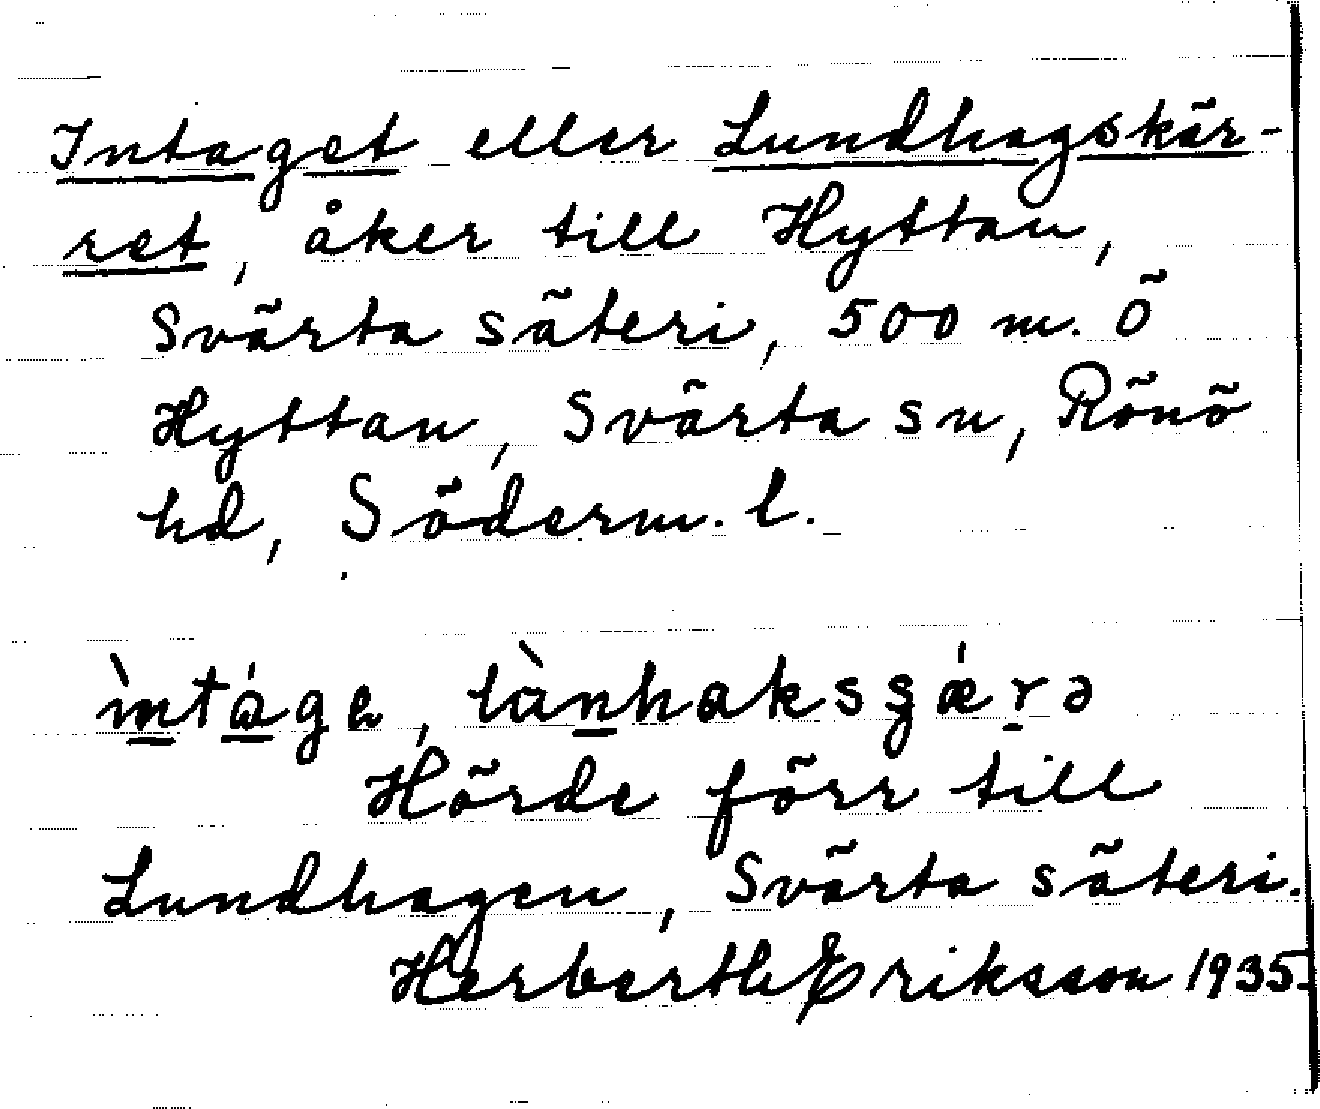 Intaget eller Lundhagskär-
ret, åker till Hyttan,
Svärta säteri, 500 m. Ö
Hyttan, Svärta sn, Rönö
hd, Söderm. l.
Hörde förr till
Lundhagen, Svärta säteri.
Herbert Eriksson 1935.